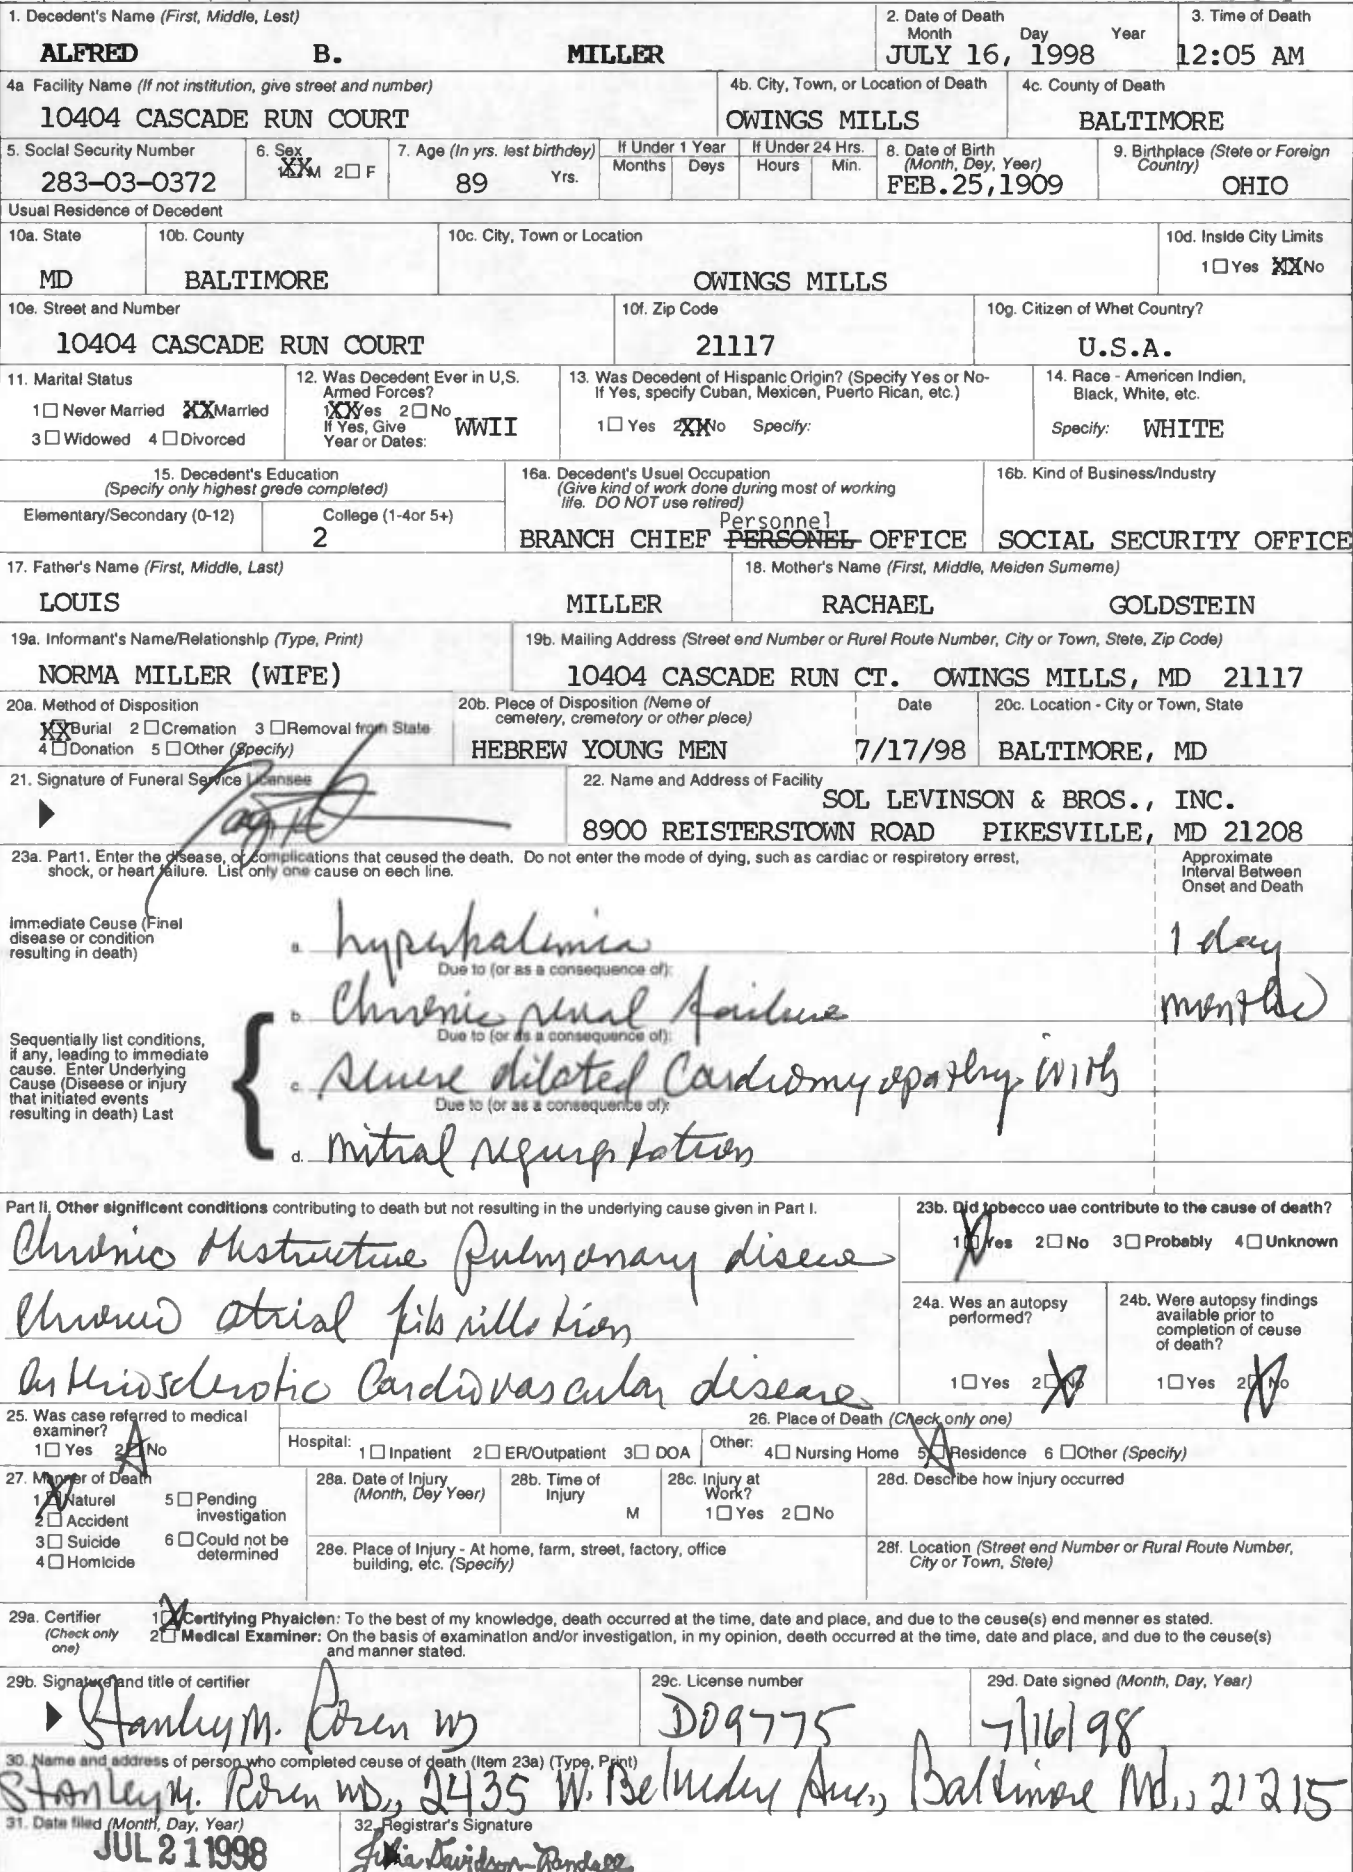 1. Decedent's Name (First, Middle, Last)
2. Date of Death
Month Day Year
3. Time of Death
ALFRED B. MILLER
JULY 16, 1998
12:05 AM
4a Facility Name (If not institution, give street and number)
4b. City, Town, or Location of Death
4c. County of Death
10404 CASCADE RUN COURT
OWINGS MILLS
BALTIMORE
5. Social Security Number
6. Sex
1☒M 2☐ F
7. Age (In yrs. last birthday)
If Under 1 Year
Months Days
If Under 24 Hrs.
Hours Min.
8. Date of Birth
(Month, Day, Year)
9. Birthplace (State or Foreign
Country)
283-03-0372
89 Yrs.
FEB.25,1909
OHIO
Usual Residence of Decedent
10a. State
10b. County
10c. City, Town or Location
10d. Inside City Limits
1☐Yes ☒No
MD
BALTIMORE
OWINGS MILLS
10e. Street and Number
10f. Zip Code
10g. Citizen of What Country?
10404 CASCADE RUN COURT
21117
U.S.A.
11. Marital Status
1☐ Never Married ☒Married
3☐ Widowed 4☐ Divorced
12. Was Decedent Ever in U.S.
Armed Forces?
1☒Yes 2☐ No
If Yes, Give
Year or Dates: WWII
13. Was Decedent of Hispanic Origin? (Specify Yes or No-
If Yes, specify Cuban, Mexican, Puerto Rican, etc.)
1☐ Yes 2☒No Specify:
14. Race - American Indian,
Black, White, etc.
Specify: WHITE
15. Decedent's Education
(Specify only highest grade completed)
Elementary/Secondary (0-12)
College (1-4or 5+)
2
16a. Decedent's Usual Occupation
(Give kind of work done during most of working
life. DO NOT use retired)
Personnel
BRANCH CHIEF PERSONEL OFFICE
16b. Kind of Business/Industry
SOCIAL SECURITY OFFICE
17. Father's Name (First, Middle, Last)
18. Mother's Name (First, Middle, Maiden Surname)
LOUIS MILLER
RACHAEL GOLDSTEIN
19a. Informant's Name/Relationship (Type, Print)
19b. Mailing Address (Street and Number or Rural Route Number, City or Town, State, Zip Code)
NORMA MILLER (WIFE)
10404 CASCADE RUN CT. OWINGS MILLS, MD 21117
20a. Method of Disposition
☒Burial 2☐Cremation 3☐Removal from State
4☐Donation 5☐Other (Specify)
20b. Place of Disposition (Name of
cemetery, crematory or other place)
Date
20c. Location - City or Town, State
HEBREW YOUNG MEN
7/17/98
BALTIMORE, MD
21. Signature of Funeral Service Licensee
22. Name and Address of Facility
SOL LEVINSON & BROS., INC.
8900 REISTERSTOWN ROAD PIKESVILLE, MD 21208
23a. Part1. Enter the disease, or complications that caused the death. Do not enter the mode of dying, such as cardiac or respiratory arrest,
shock, or heart failure. List only one cause on each line.
Approximate
Interval Between
Onset and Death
Immediate Cause (Final
disease or condition
resulting in death)
a. hyperkalemia
1 day
Due to (or as a consequence of):
b. Chronic renal failure
months
Due to (or as a consequence of):
Sequentially list conditions,
if any, leading to immediate
cause. Enter Underlying
Cause (Disease or injury
that initiated events
resulting in death) Last
c. severe dilated Cardiomyopathy with
Due to (or as a consequence of):
d. mitral regurgitation
Part II. Other significant conditions contributing to death but not resulting in the underlying cause given in Part I.
Chronic obstructive pulmonary disease
Chronic atrial fibrillation
arteriosclerotic cardiovascular disease
23b. Did tobacco use contribute to the cause of death?
1☒Yes 2☐No 3☐Probably 4☐Unknown
24a. Was an autopsy
performed?
1☐Yes 2☒No
24b. Were autopsy findings
available prior to
completion of cause
of death?
1☐Yes 2☒No
25. Was case referred to medical
examiner?
1☐ Yes 2☒No
26. Place of Death (Check only one)
Hospital: 1☐Inpatient 2☐ ER/Outpatient 3☐ DOA
Other: 4☐Nursing Home 5☒Residence 6☐Other (Specify)
27. Manner of Death
1☒Natural
2☐Accident
3☐Suicide
4☐Homicide
5☐Pending
investigation
6☐Could not be
determined
28a. Date of Injury
(Month, Day Year)
28b. Time of
Injury
M
28c. Injury at
Work?
1☐Yes 2☐No
28d. Describe how injury occurred
28e. Place of Injury - At home, farm, street, factory, office
building, etc. (Specify)
28f. Location (Street and Number or Rural Route Number,
City or Town, State)
29a. Certifier
(Check only
one)
1☒Certifying Physician: To the best of my knowledge, death occurred at the time, date and place, and due to the cause(s) and manner as stated.
2☐Medical Examiner: On the basis of examination and/or investigation, in my opinion, death occurred at the time, date and place, and due to the cause(s)
and manner stated.
29b. Signature and title of certifier
29c. License number
29d. Date signed (Month, Day, Year)
Stanley M. Rosen MD
D09775
7/16/98
30. Name and address of person who completed cause of death (Item 23a) (Type, Print)
Stanley M. Rosen MD., 2435 W. Belvedere Ave., Baltimore Md., 21215
31. Date filed (Month, Day, Year)
JUL 21 1998
32. Registrar's Signature
Julia Davidson-Randall